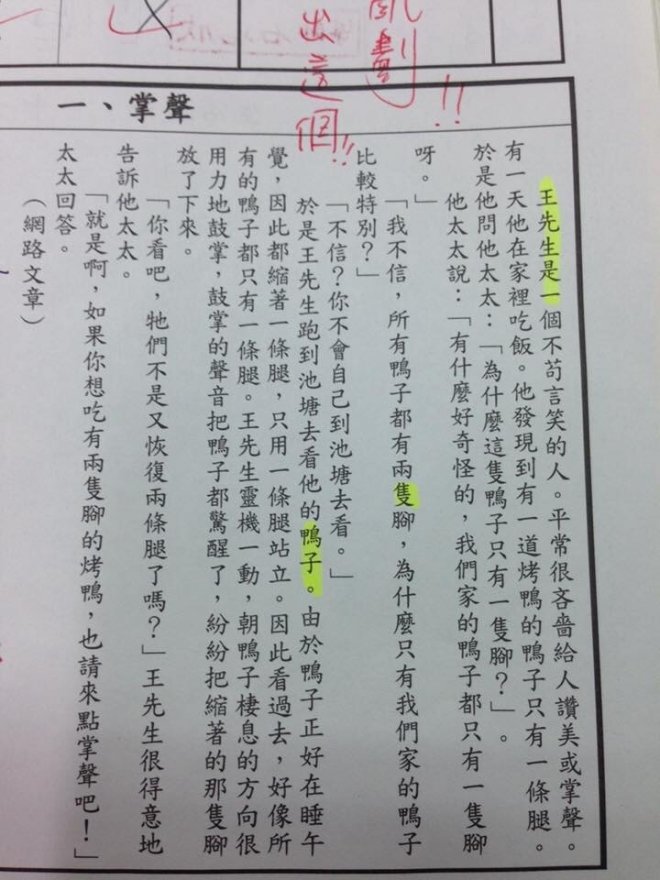 劃!!
出這個!!
一、掌聲
王先生是一個不苟言笑的人。平常很吝嗇給人讚美或掌聲。
有一天他在家裡吃飯。他發現到有一道烤鴨的鴨子只有一條腿。
於是他問他太太：「為什麼這隻鴨子只有一隻腳？」。
他太太說：「有什麼好奇怪的，我們家的鴨子都只有一隻腳
呀。」
「我不信，所有鴨子都有兩隻腳，為什麼只有我們家的鴨子
比較特別？」
「不信？你不會自己到池塘去看。」
於是王先生跑到池塘去看他的鴨子。由於鴨子正好在睡午
覺，因此都縮著一條腿，只用一條腿站立。因此看過去，好像所
有的鴨子都只有一條腿。王先生靈機一動，朝鴨子棲息的方向很
用力地鼓掌，鼓掌的聲音把鴨子都驚醒了，紛紛把縮著的那隻腳
放了下來。
「你看吧，牠們不是又恢復兩條腿了嗎？」王先生很得意地
告訴他太太。
「就是啊，如果你想吃有兩隻腳的烤鴨，也請來點掌聲吧！」
太太回答。
（網路文章）